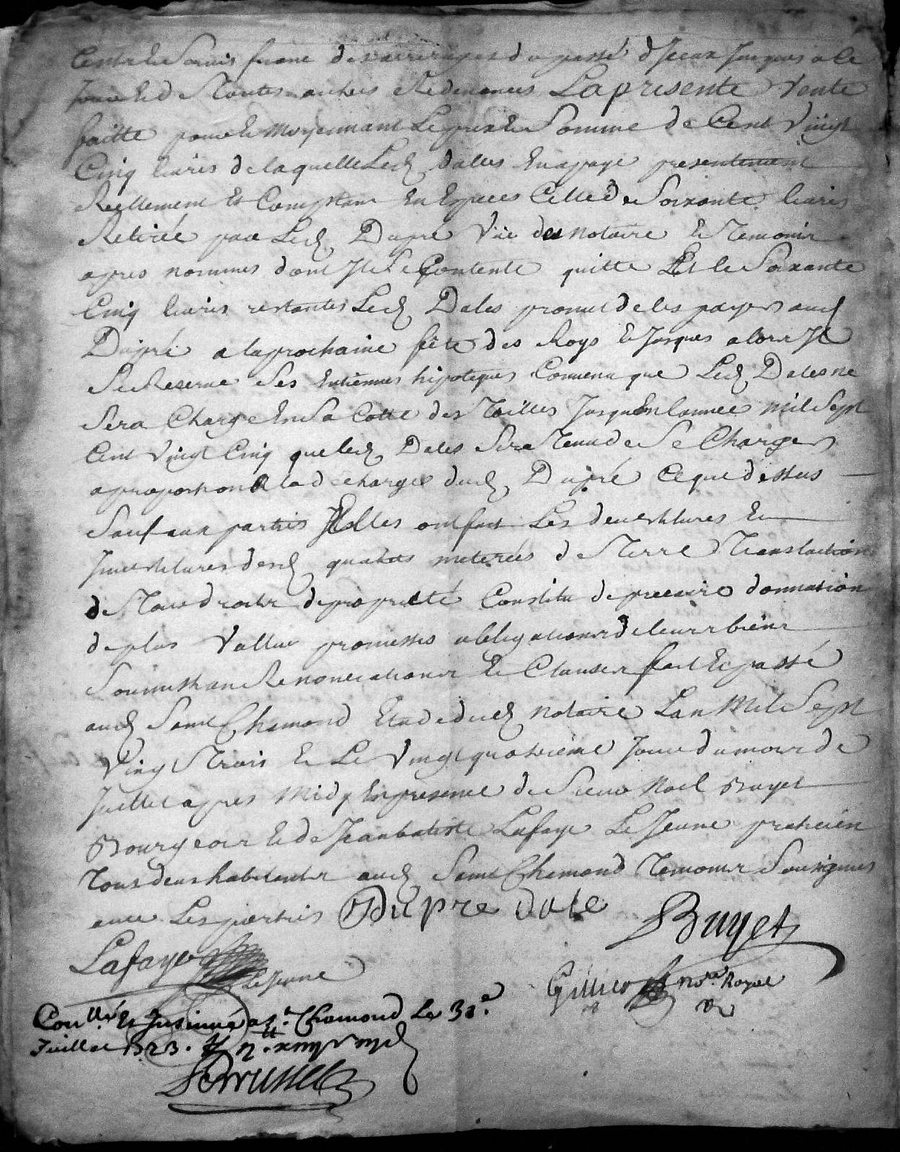 franc des arrerages du passé Jusques a ce
Jour et de toutes autres Redevances La presente Vente
faitte pour et moyennant Le prix et Somme de Cent Vingt
Cinq livres de laquelle Led Dales En a payé presentement
Reellement Et Comptant En Especes Celle de Soixante livres
Retirée par Led Dupré Vüe des notaire Et Temoins
apres nommes dont Il Se Contente quitte Et le Soixante
Cinq livres restantes Led Dales promet de les payer aud
Dupré a la prochaine fête des Roys Et Jusques alors Il
Se Reserve Ses entiennes hipoteques Convenu que Led Dales ne
Sera Charge En Sa Cotte des Tailles Jusqu En lannee mil Sept
Cent Vingt Cinq que led Dales Sera Tenu de Se Charger
a proportion a la decharge dud Dupré Ce que dessus
Sauf aux parties Elles ont fait Les devestitures Et
Investitures desd quattes meterées de Terre Translation
de Tous droits de propriété Constitu de precaire donnation
de plus Vallue promesses obbligations de leurs biens
Soumissions Renonciations Et Clauses fait Et passé
aud Saint Chamond Etude dud notaire Lan Mil Sept
Vingt Trois Et Le Vingt quatrieme Jour du mois de
Juillet apres Midy En presence de Sieur Noel Buyet
Bourgeois Et de Jean batiste Lafaye Le Jeune praticien
Tous deux habitants aud Saint Chamond Temoins Sousignes
avec Les parties Dupre Dale Buyet
Lafaye Le Jeune
no.re Royal
Con.llé Et Insinué a S.t Chamond Le 31.e
Juillet 1723.